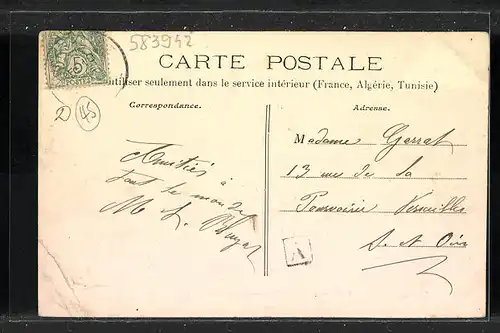 583942
5
CARTE POSTALE
utiliser seulement dans le service intérieur (France, Algérie, Tunisie)
Correspondance.
Adresse.
D
45
Amitiés à
tout le monde
M L
Madame Garrat
13 rue de la
Pourvoirie Versailles
S. et Oise
A